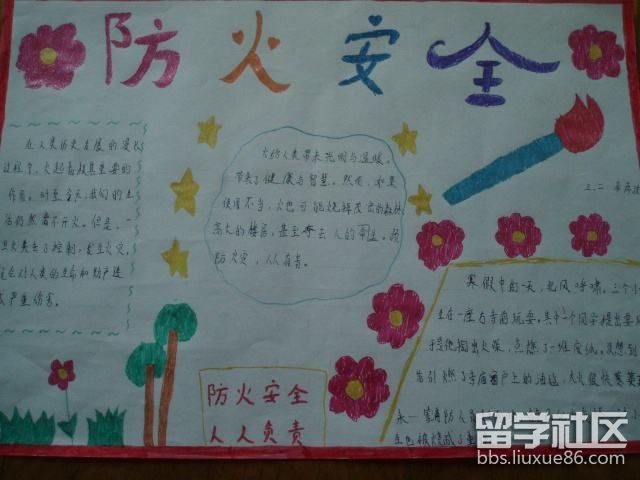 防火安全
在人类历史发展的漫长
过程中,火起着极其重要的
作用。时至今天,我们的生
活仍然离不开火。但是,一
旦火失去了控制,发生火灾,
就会对人类的生命和财产造
成严重伤害。
火给人类带来光明与温暖,
带来了健康与智慧。然而,如果
使用不当,火也可能烧掉茂密的森林
高大的楼房,甚至夺去人的
防火灾,人人有责。
三、二
寒假中的一天,北风呼啸。三个小
生在一座古寺前玩耍。其中一个同学提出要
于是他掏出火柴,点燃了一堆废纸。没想到
引燃了寺庙窗户上的油毡,大火很快
防火安全
人人负责
永一
留学社区
bbs.liuxue86.com